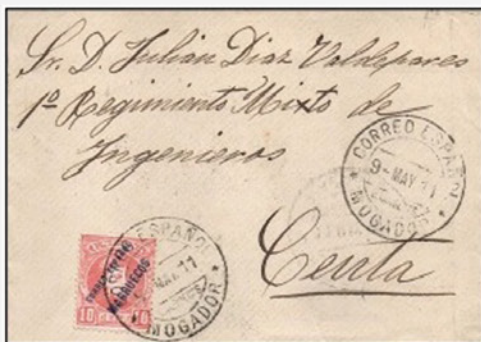 Sr. D. Julian Diaz Valdepares
1º Regimiento Mixto de
Ingenieros
Ceuta
CORREO ESPAÑOL
9-MAY 11
MOGADOR
ESPAÑOL
MAY 11
MOGADOR
CORREO ESPAÑOL
MARRUECOS
10 CENTS 10